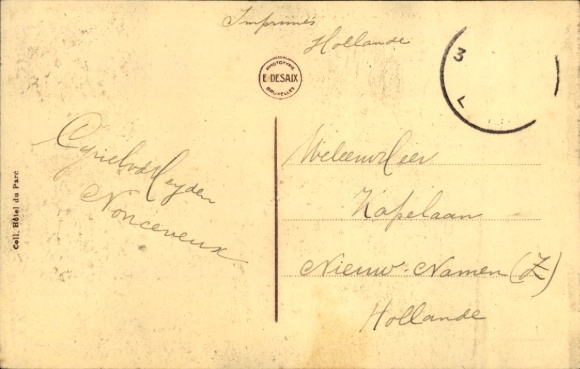 Imprimés
Hollande
PHOTOTYPIE
E. DESAIX
BRUXELLES
3
L
Coll. Hôtel du Parc
Cyriel vd Heyden
Nonceveux
Weleerw. Heer
Kapelaan
Nieuw-Namen (Z)
Hollande